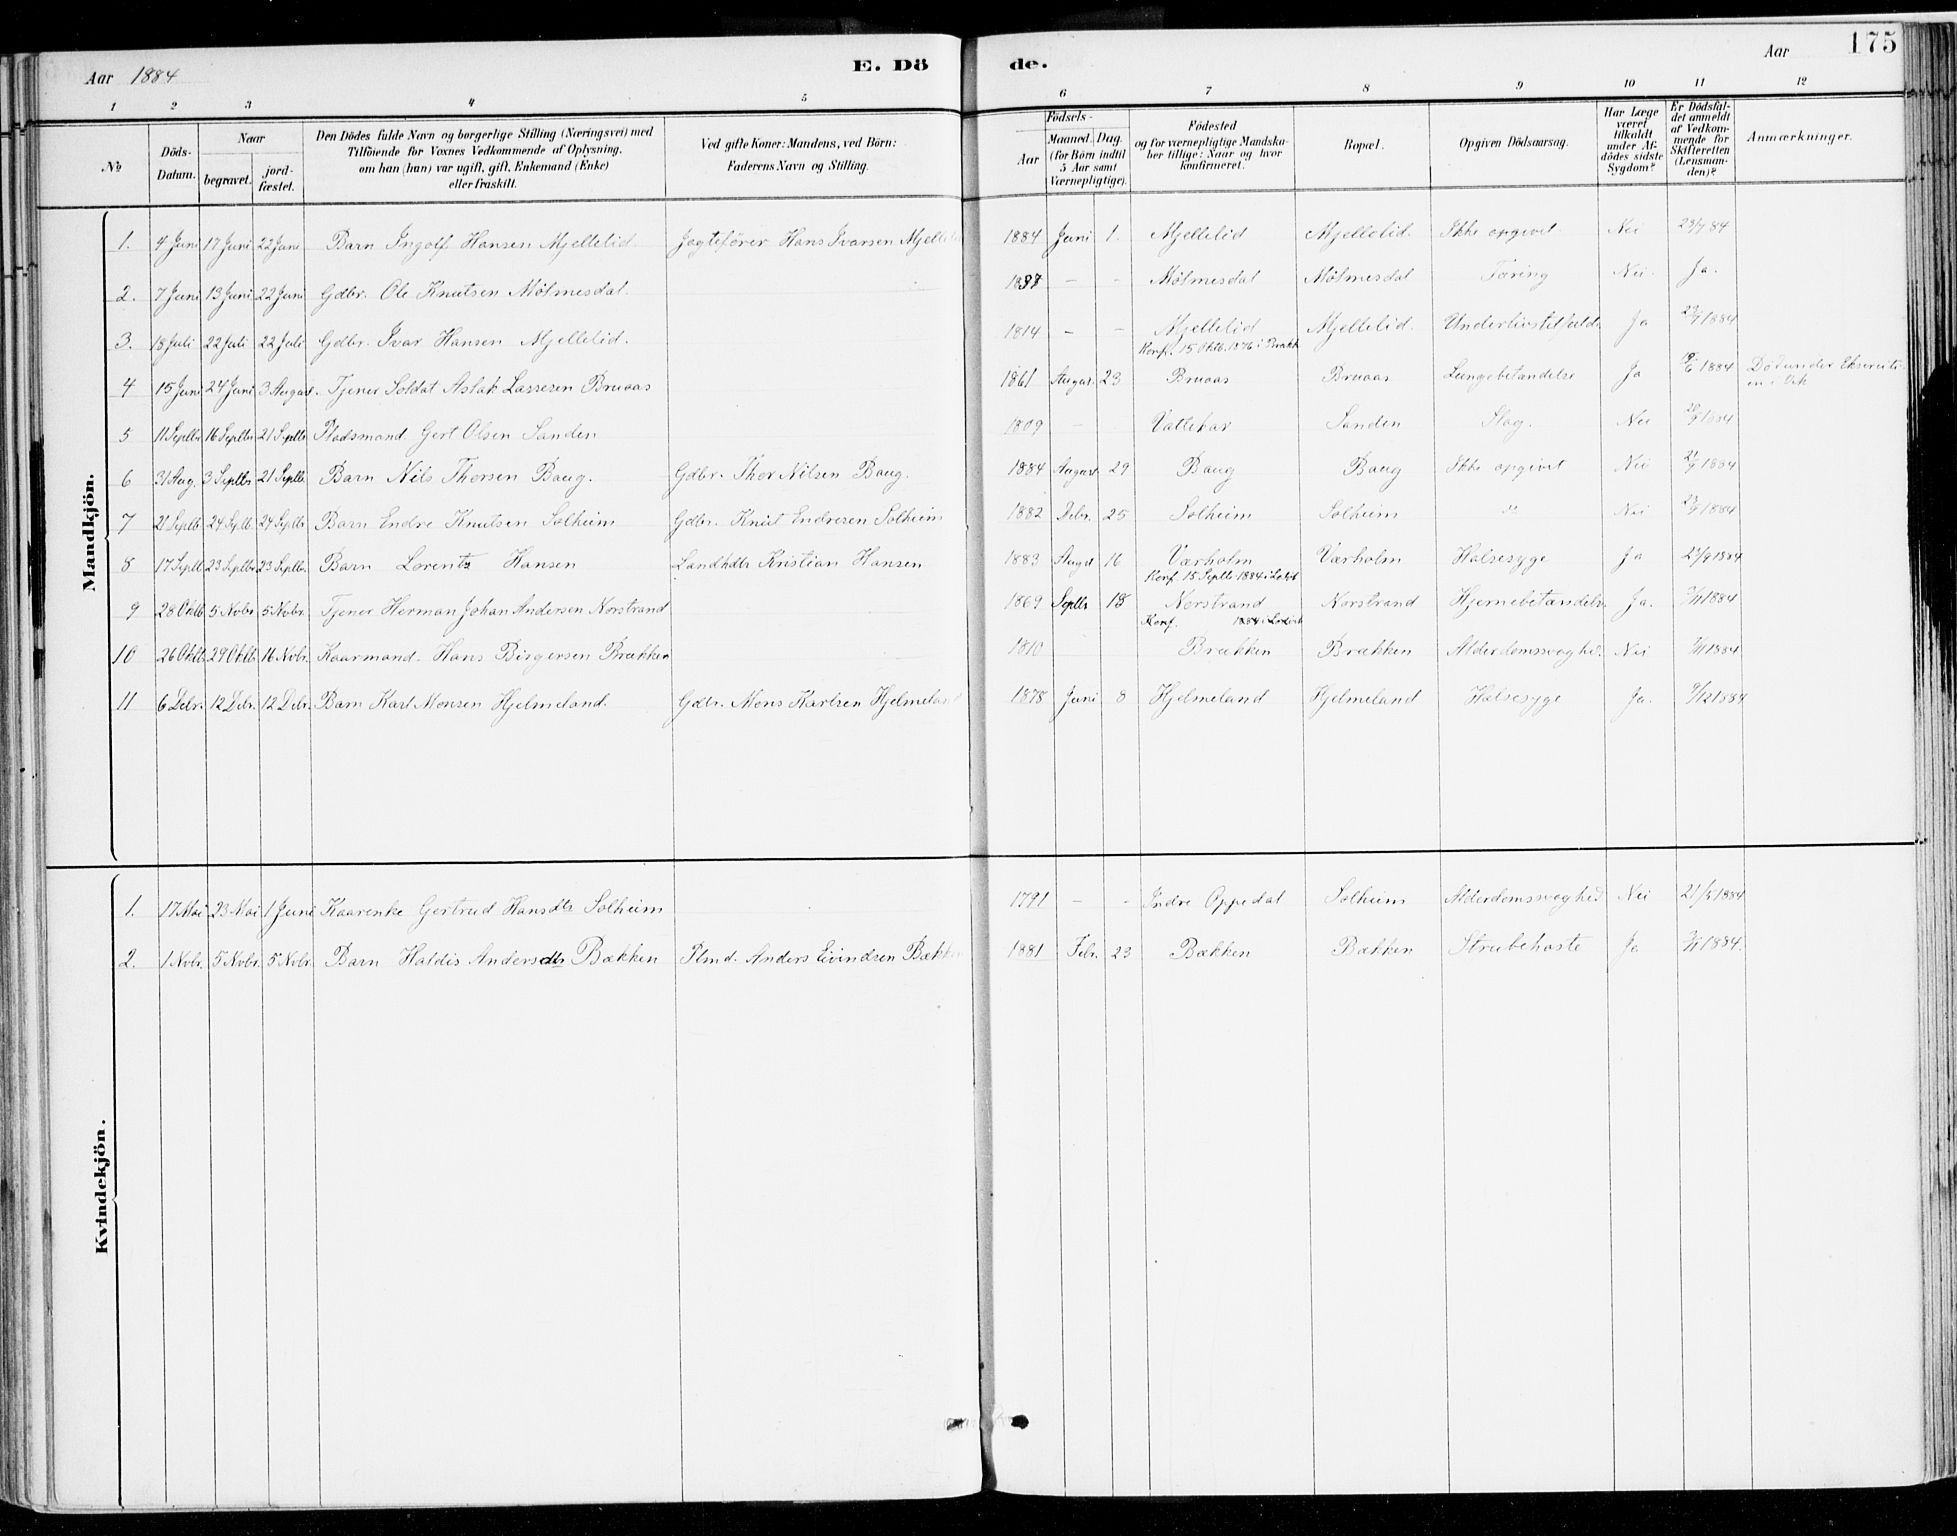 Aar 1884 E. Dö de. Aar 175
1 2 3 4 5 6 7 8 9 10 11 12
No
Döds-Datum.
Naar begravet. jordfæstet.
Den Dödes fulde Navn og borgerlige Stilling (Næringsvei) med
Tilföiende for Voxnes Vedkommende af Oplysning,
om han (hun) var ugift, gift, Enkemand (Enke)
eller fraskilt.
Ved gifte Koner: Mandens, ved Börn:
Faderens Navn og Stilling.
Födsels-
Aar Maaned. Dag.
(for Börn indtil
5 Aar samt
Værnepligtige).
Födested
og for værnepligtige Mandskaber tillige: Naar og hvor
konfirmeret.
Bopæl.
Opgiven Dödsaarsag.
Har Læge været tilkaldt under Afdödes sidste Sygdom?
Er Dödsfaldet anmeldt af Vedkommende for Skifteretten (Lensmanden)?
Anmærkninger.
Mandkjön.
1. 4 Juni 17 Juni 22 Juni Barn Ingolf Hansen Mjellelid Jagtefører Hans Ivarsen Mjellelid 1884 Juni 1. Mjellelid Mjellelid. Ikke opgivet Nei 23/7 84
2. 7 Juni 13 Juni 22 Juni Gdbr. Ole Knutsen Mölmesdal. 1837 - - Mölmesdal Mölmesdal Tæring Nei. Ja.
3. 18 Juli 22 Juli 22 Juli Gdbr. Ivar Hansen Mjellelid. 1814 - - Mjellelid Mjellelid. Underlivstilfælde Ja 1884
Konf. 15 Oktb. 1876 i Brækk
4 15 Juni 24 Juni 3 August. Tjener Soldat Aslak Lassesen Bruaas 1861 August 23 Bruaas Bruaas Lungebetændelse Ja 1884 Död under Ekserciti-
en i Vik
5 11 Septbr 16 Septbr 21 Septb Pladsmand Gert Olsen Sanden 1809 - - Vallekar Sanden Slag. Nei 1884
6 31 Aug. 3 Septbr 21 Septb Barn Nils Thorsen Baug. Gdbr. Thor Nilsen Baug. 1884 August 29 Baug Baug Ikke opgivet Nei 1884
7 21 Septb 24 Septb 24 Septb Barn Endre Knutsen Solheim Gdbr. Knut Endresen Solheim 1882 Debr. 25 Solheim Solheim do Nei 1884
8 17 Septb 23 Septbr 23 Septbr. Barn Lorents Hansen Landhdlr Kristian Hansen 1883 Augst 16 Værholm Værholm Halsesyge Ja 23/9 1884
Konf. 15 Septb 1884 i
9 28 Oktb 5 Nvbr. 5 Nvbr. Tjener Herman Johan Andersen Norstrand 1869 Septbr 18 Norstrand Norstrand Hjernebetændelse Ja. 1884
Konf. 1884 i
10 26 Oktb. 29 Oktb. 16 Nvbr. Kaarmand. Hans Birgersen Brækken 1810 Brækken Brækken Alderdomssvaghed. Nei 1884
11 6 Debr. 12 Debr. 12 Debr. Barn Karl Monsen Hjelmeland. Gdbr. Mons Karlsen Hjelmeland 1878 Juni 8 Hjelmeland Hjelmeland Halsesyge Ja. 9/12 1884
Kvindekjön.
1. 17 Mai 23 Mai 1 Juni Kaarenke Gertrud Hansdtr Solheim 1791 - - Indre Oppedal Solheim Alderdomssvaghed Nei 21/5 1884
2. 1 Nvbr. 5 Nvbr. 5 Nvbr. Barn Haldis Andersdtr Bækken Plmd. Anders Eivindsen Bækken 1881 Febr. 23 Bækken Bækken Strubehoste Ja 1884.